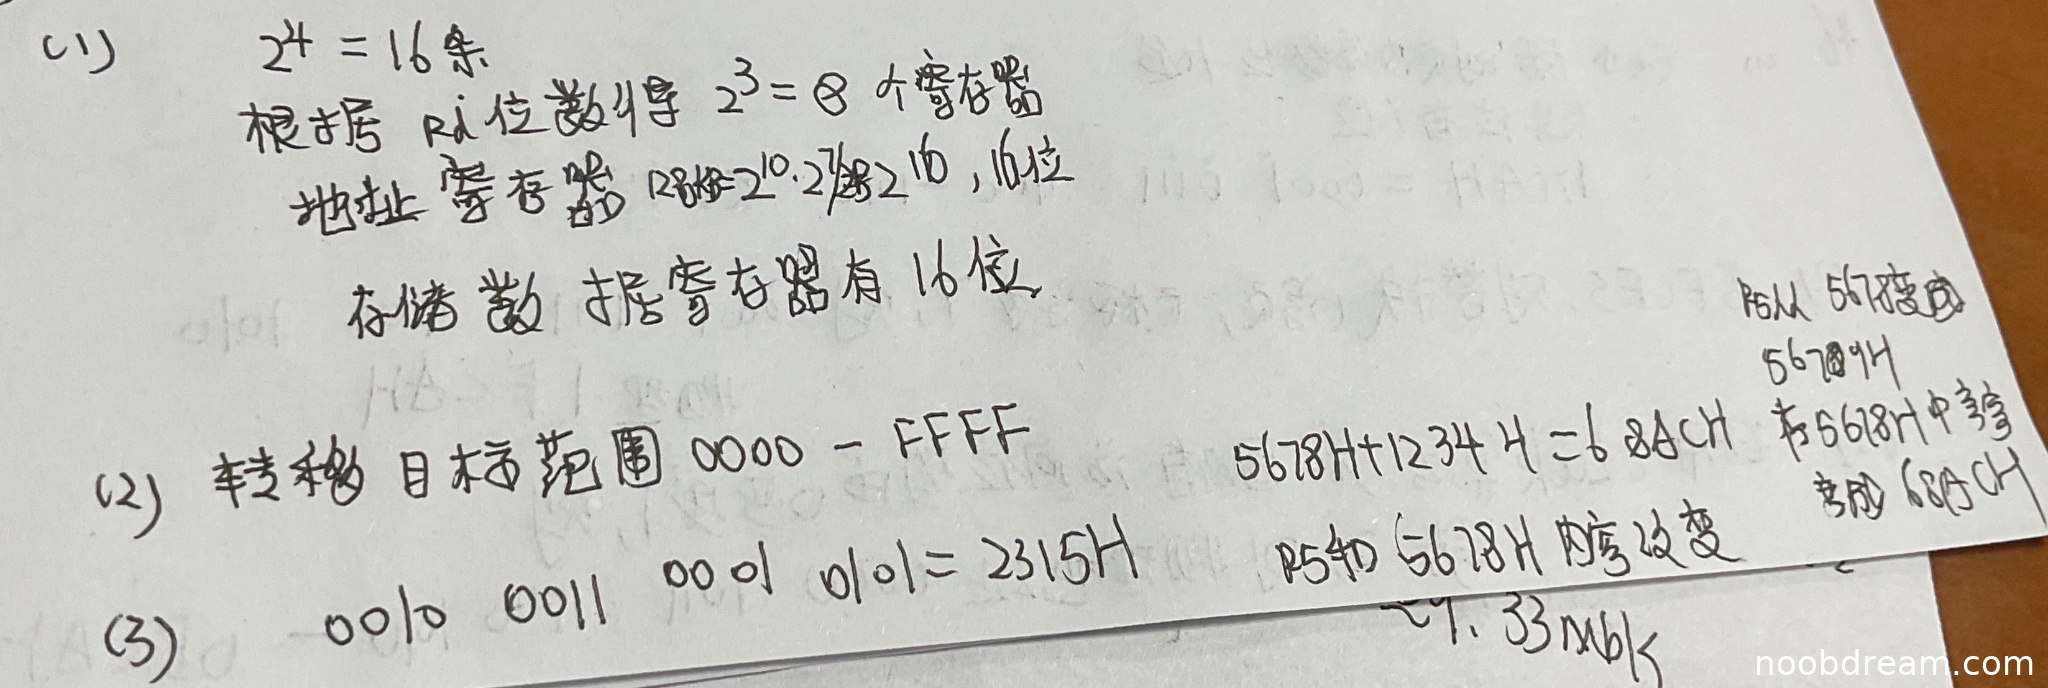 (1) 2⁴ = 16条
根据 Rd位数得 2³ = 8 个寄存器
地址寄存器 2¹⁰·2⁷ 2¹⁶, 16位
存储数据寄存器有16位
(2) 转移目标范围 0000 - FFFF
(3) 0010 0011 0001 0101 = 2315H
5678H+1234H = 68ACH
R5和5678H内容改变
R5从5678变成
5679H
存5678H中内容
变成 68ACH
.33 Mb/s
noobdream.com